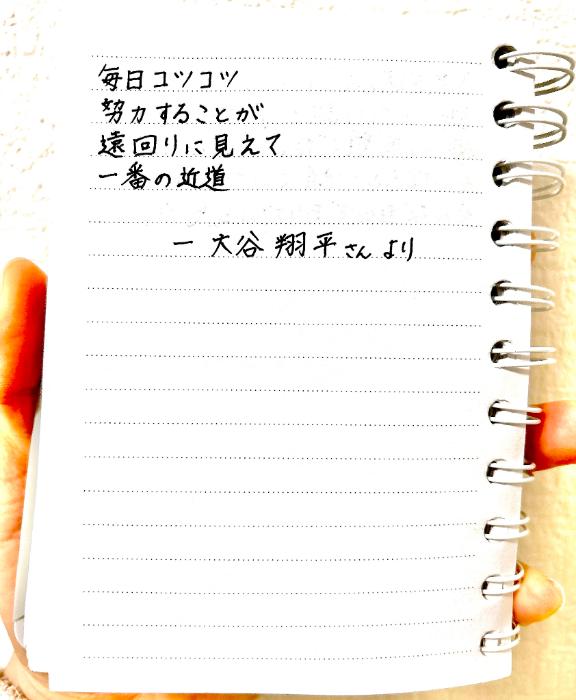 毎日コツコツ
努力することが
遠回りに見えて
一番の近道
ー 大谷翔平さんより